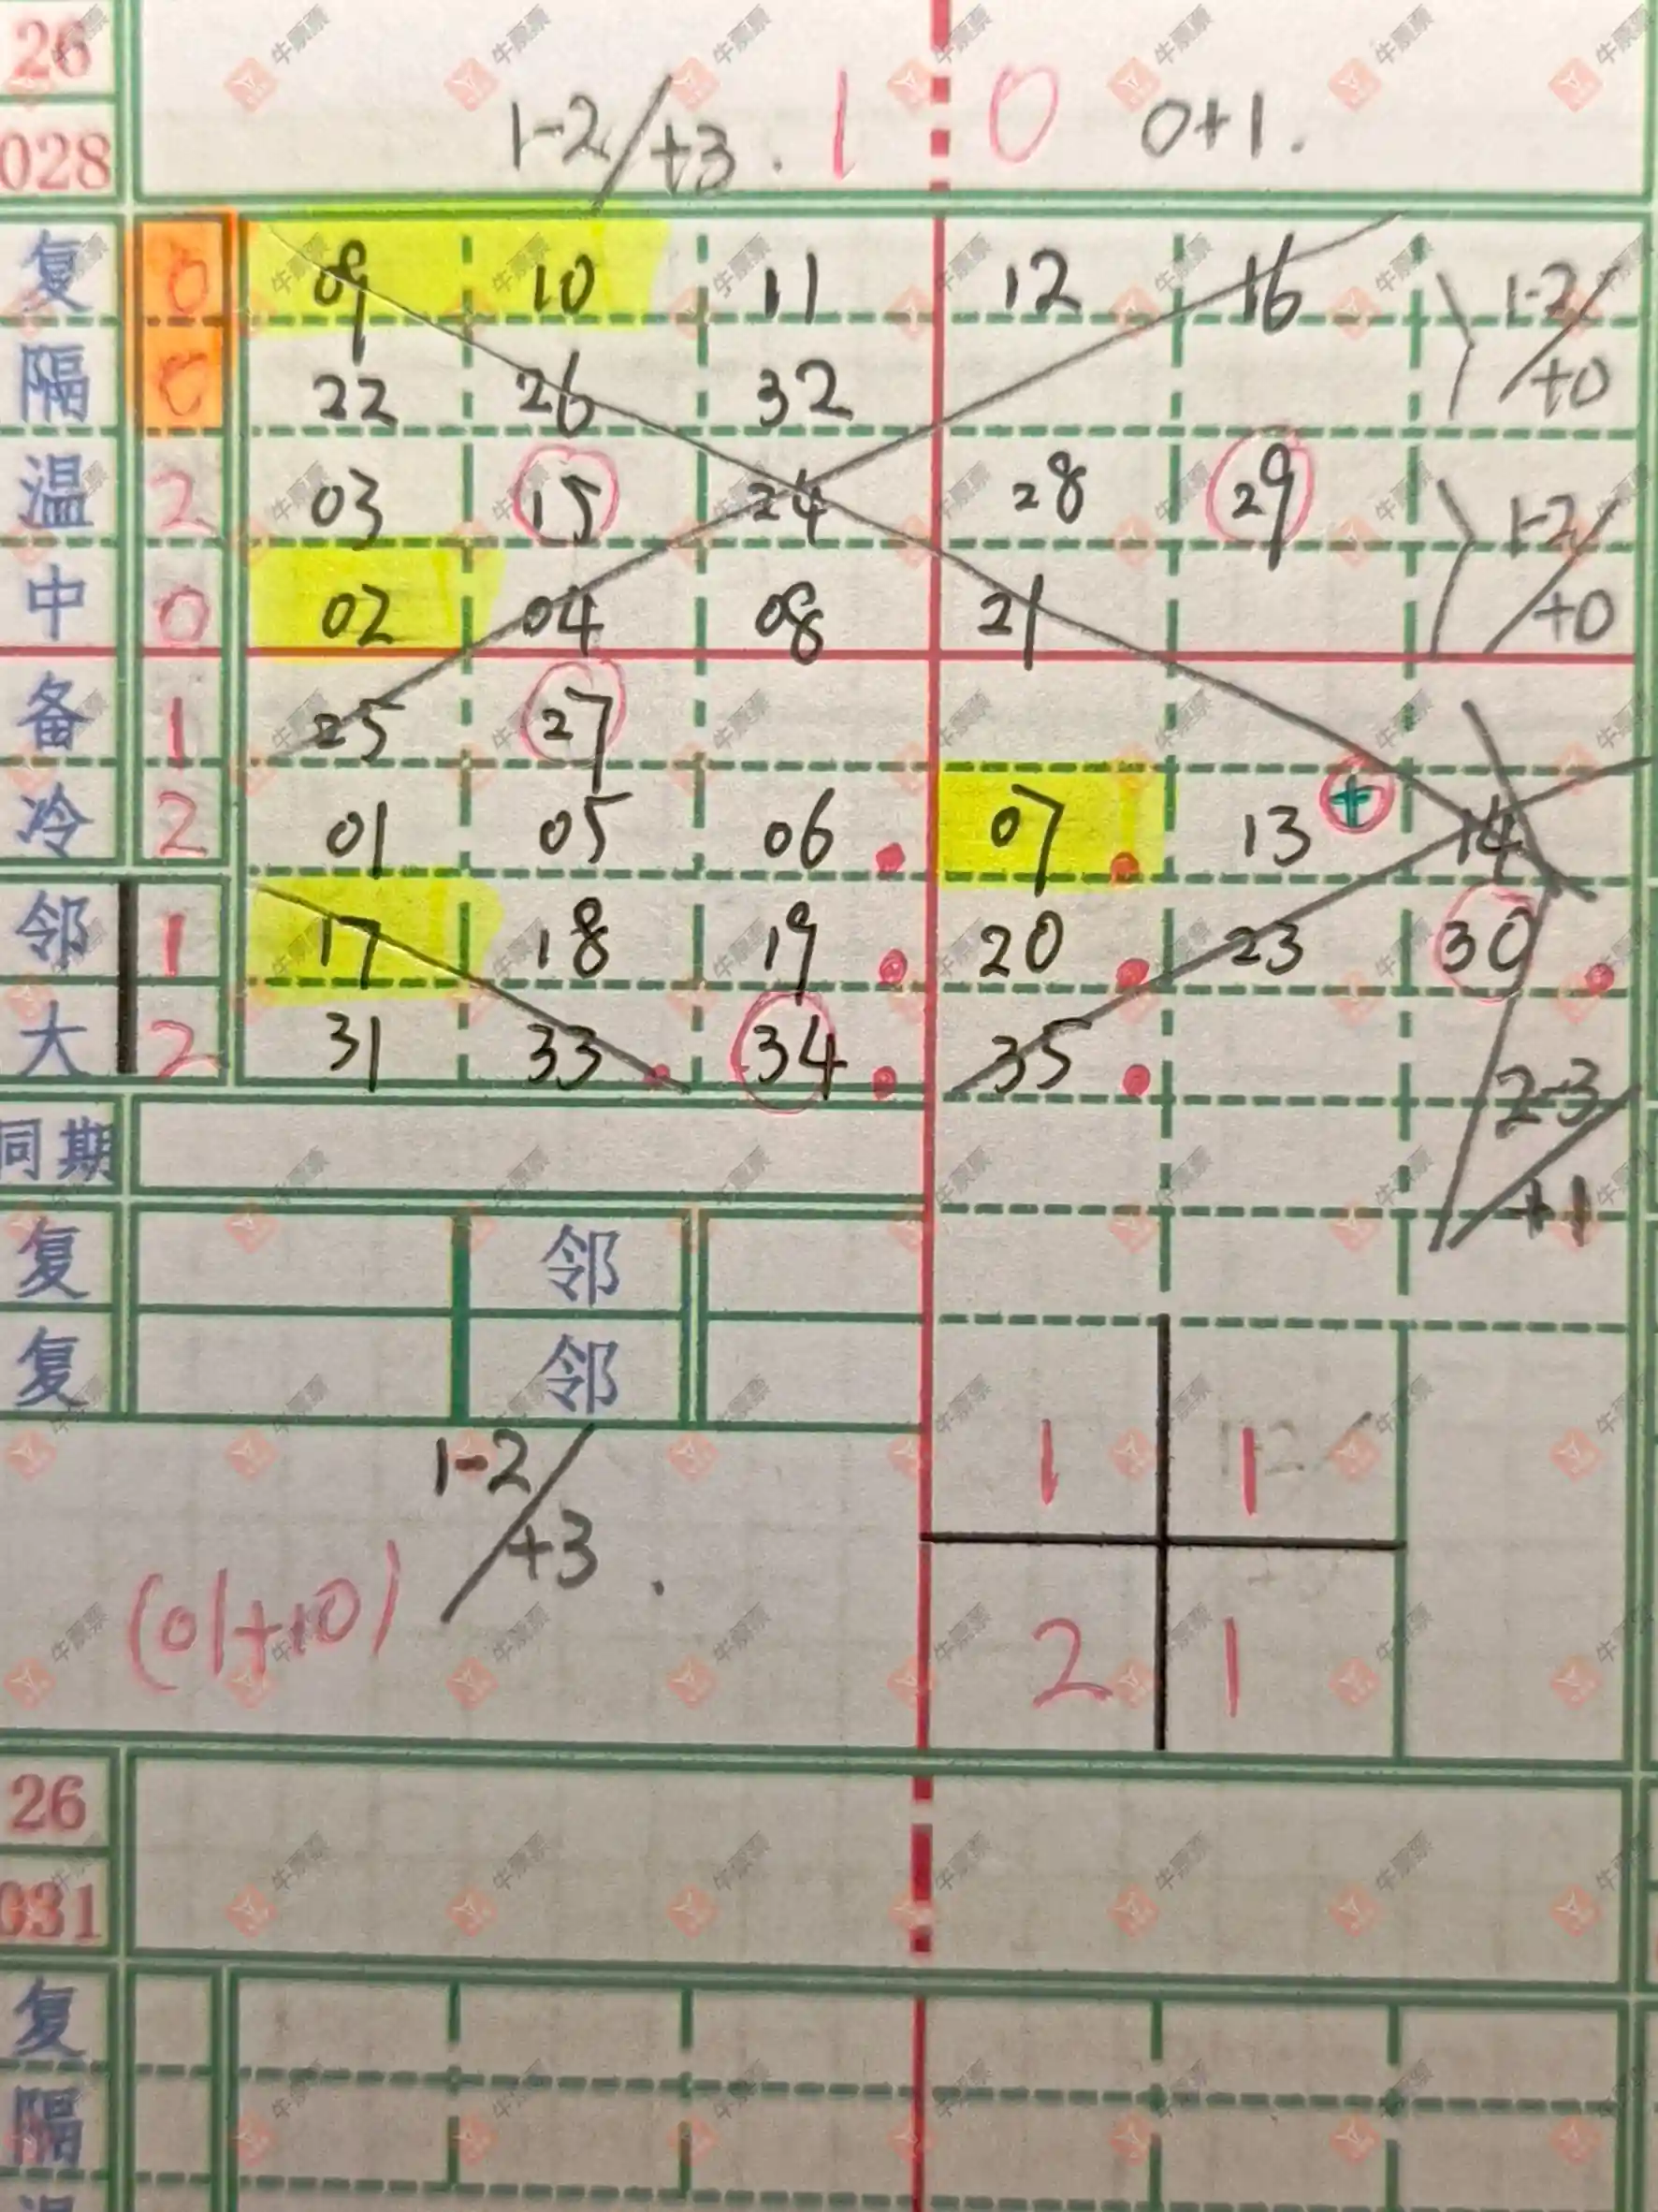 26
028 1-2/+3. 1 0 0+1.
复 0 09 10 11 12 16 1-2/+0
隔 0 22 26 32
温 2 03 15 24 28 29 1-2/+0
中 0 02 04 08 21
备 1 25 27
冷 2 01 05 06 07 13 + 14
邻 1 17 18 19 20 23 30
大 2 31 33 34 35 2-3/+1
同期
复 邻
复 邻
1-2/+3.
1 1
(01+10)
2 1
26
031
复
隔
温
牛票票